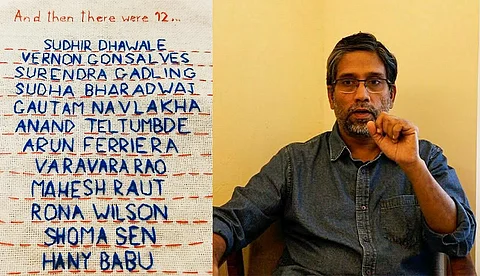 And then there were 12...
SUDHIR DHAWALE
VERNON GONSALVES
SURENDRA GADLING
SUDHA BHARADWAJ
GAUTAM NAVLAKHA
ANAND TELTUMBDE
ARUN FERRIERA
VARAVARA RAO
MAHESH RAUT
RONA WILSON
SHOMA SEN
HANY BABU